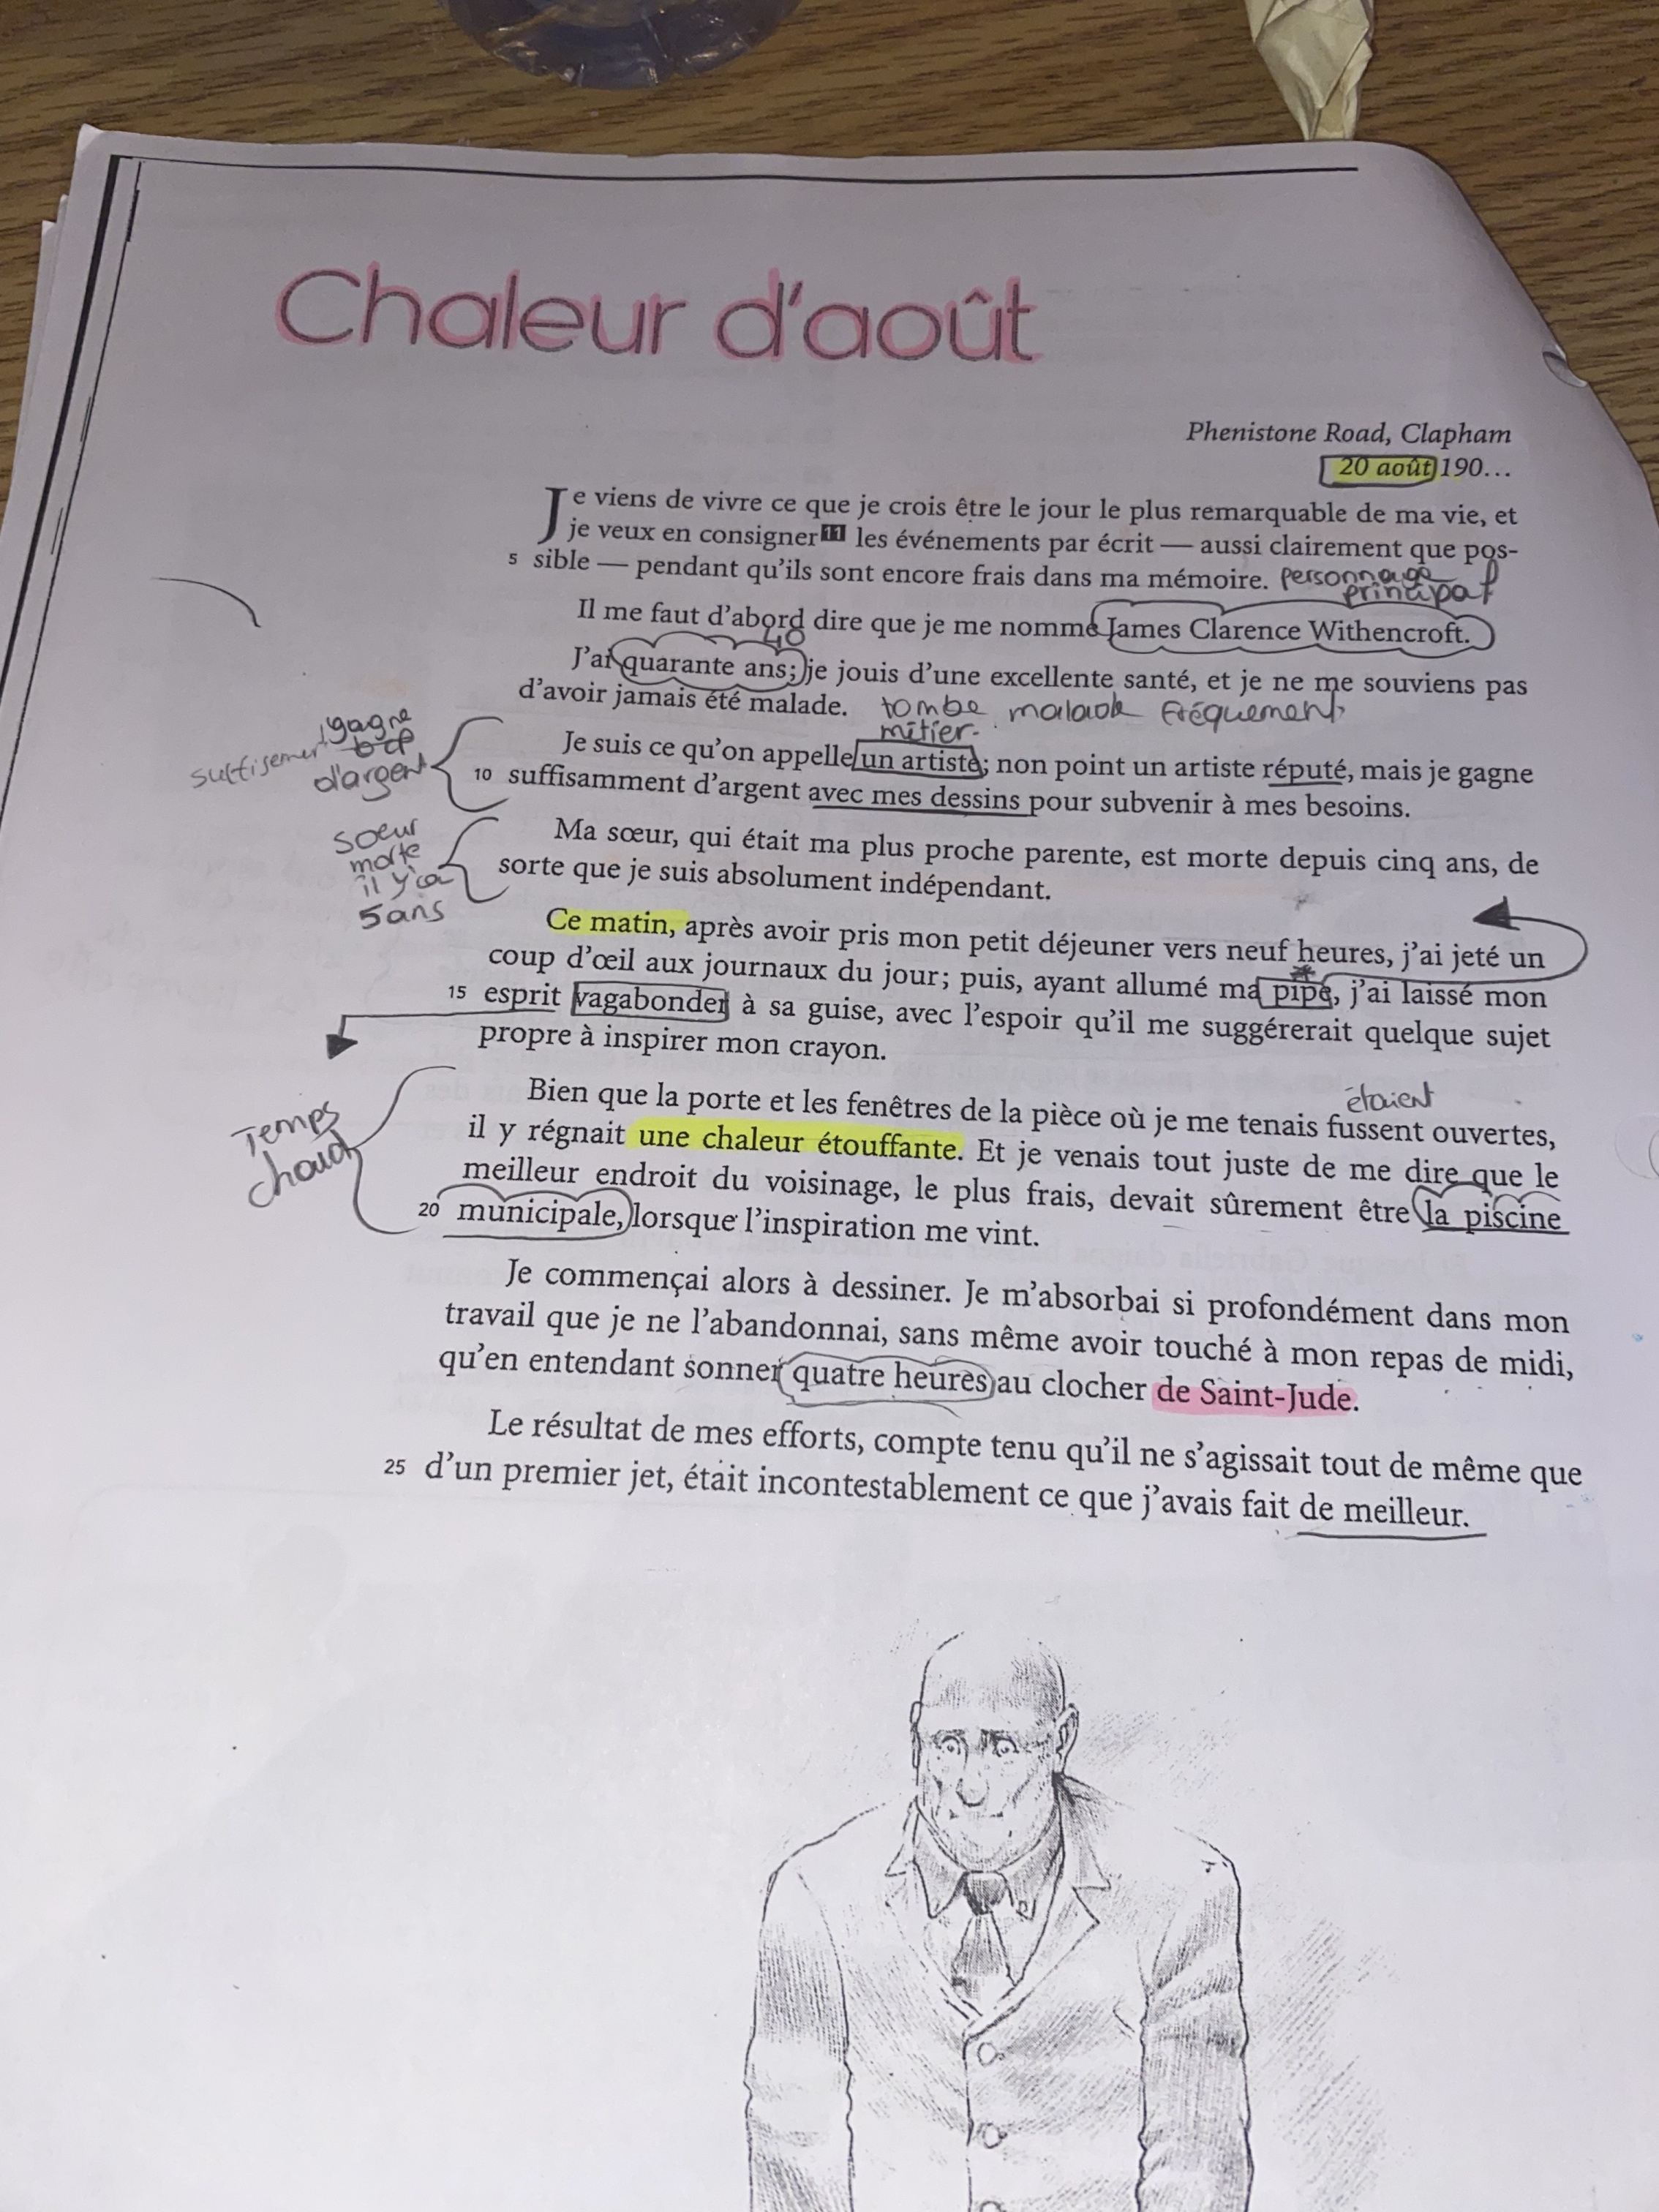 Chaleur d'août
Phenistone Road, Clapham
20 août 190...
Je viens de vivre ce que je crois être le jour le plus remarquable de ma vie, et
je veux en consigner 11 les événements par écrit — aussi clairement que pos-
5 sible — pendant qu'ils sont encore frais dans ma mémoire. personnage
principal
Il me faut d'abord dire que je me nomme James Clarence Withencroft.
40
J'ai quarante ans; je jouis d'une excellente santé, et je ne me souviens pas
d'avoir jamais été malade. tombe malade fréquement
métier.
gagne
Je suis ce qu'on appelle un artiste; non point un artiste réputé, mais je gagne
bcp
d'argent
10 suffisamment d'argent avec mes dessins pour subvenir à mes besoins.
soeur
morte
il y'a
5 ans
Ma sœur, qui était ma plus proche parente, est morte depuis cinq ans, de
sorte que je suis absolument indépendant.
Ce matin, après avoir pris mon petit déjeuner vers neuf heures, j'ai jeté un
coup d'œil aux journaux du jour; puis, ayant allumé ma pipe, j'ai laissé mon
15 esprit vagabonder à sa guise, avec l'espoir qu'il me suggérerait quelque sujet
propre à inspirer mon crayon.
étaient
Bien que la porte et les fenêtres de la pièce où je me tenais fussent ouvertes,
Temps
chaud
il y régnait une chaleur étouffante. Et je venais tout juste de me dire que le
meilleur endroit du voisinage, le plus frais, devait sûrement être la piscine
20 municipale, lorsque l'inspiration me vint.
Je commençai alors à dessiner. Je m'absorbai si profondément dans mon
travail que je ne l'abandonnai, sans même avoir touché à mon repas de midi,
qu'en entendant sonner quatre heures au clocher de Saint-Jude.
Le résultat de mes efforts, compte tenu qu'il ne s'agissait tout de même que
25 d'un premier jet, était incontestablement ce que j'avais fait de meilleur.